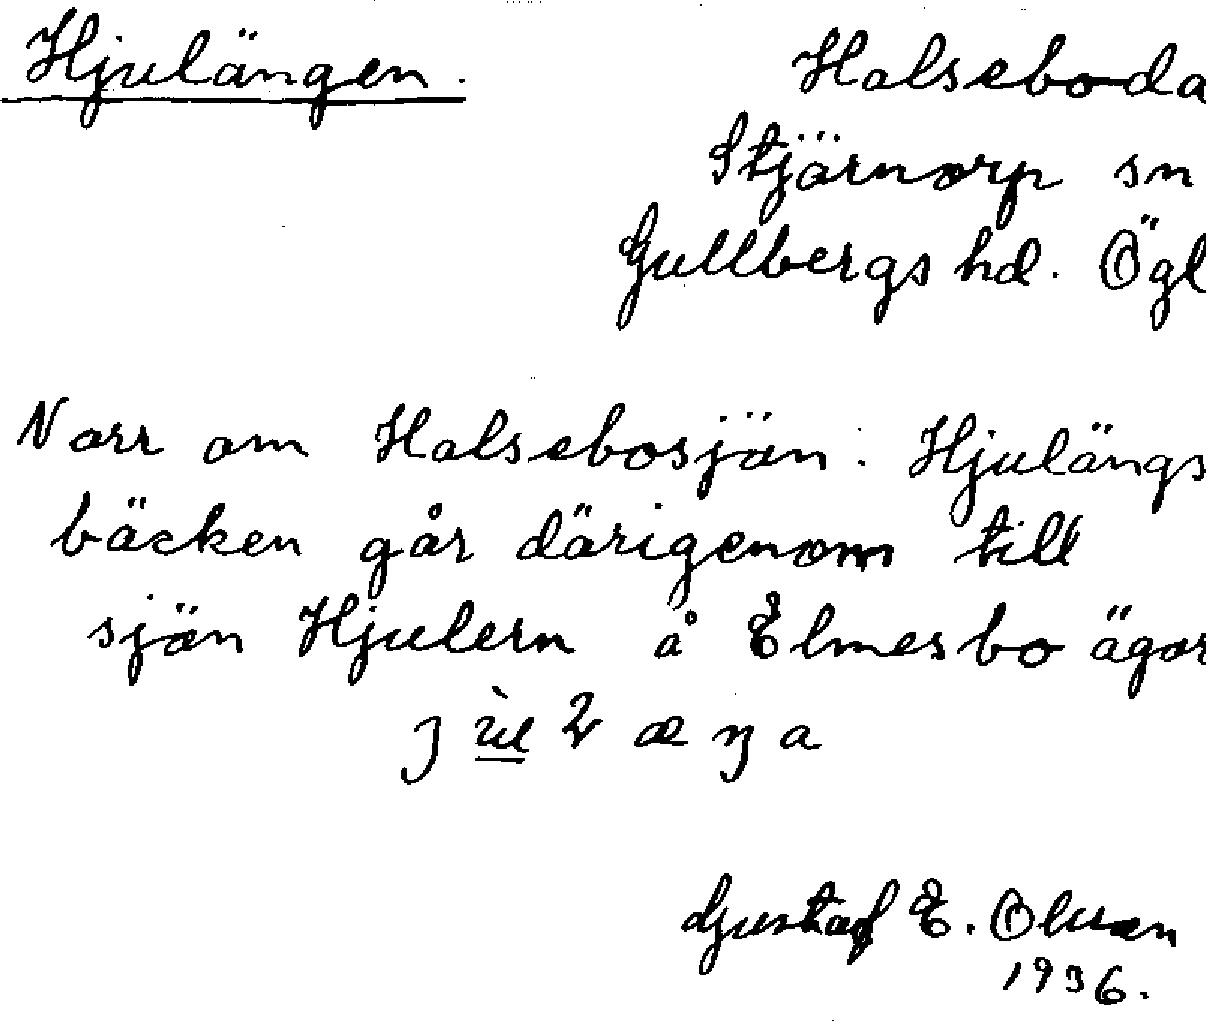 Hjulängen.
Halseboda
Stjärnorp sn
Gullbergs hd. Ögl
Norr om Halsebosjön. Hjulängs
bäcken går därigenom till
sjön Hjulern å Elmesbo ägor
Gustaf E. Olsson
1936.